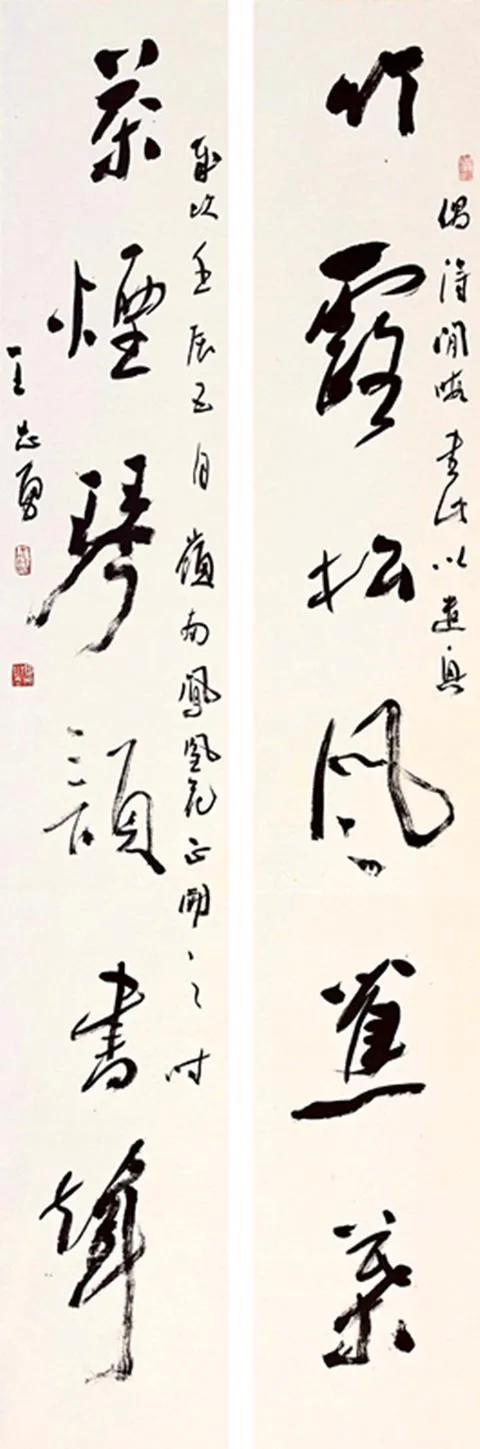 偶得閒暇書此以遣興
竹露松風蕉葉
歲次壬辰五月嶺南鳳凰花正開之時
茶煙琴韻書聲
王志勇